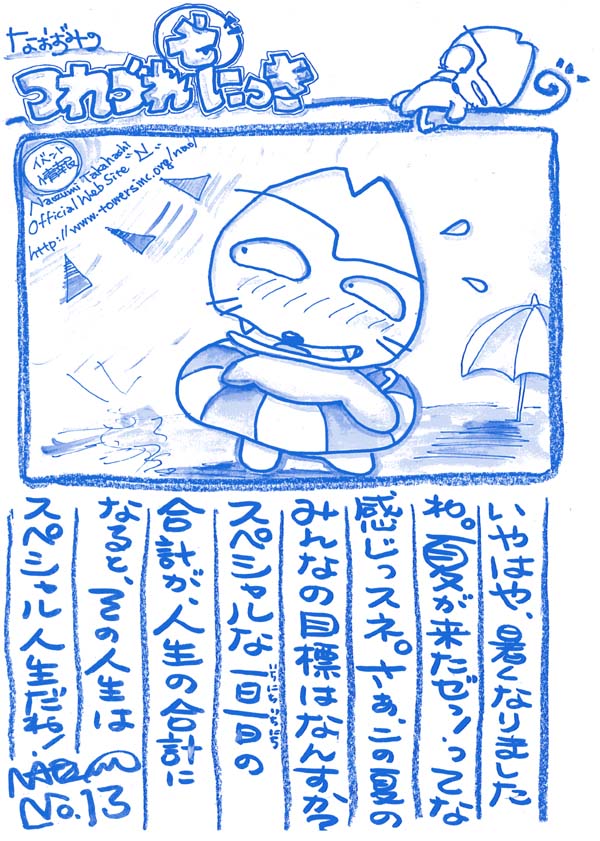 なおずみの
つれづれ
ぜ
にっき
イベント
情報
Naozumi Takahashi
Official Web Site "N"
http://www.towersinc.org/nao/
いやはや、暑くなりました
ね。夏が来たぜッ!ってな
感じっスネ。さぁ、この夏の
みんなの目標はなんすか?
スペシャルな一日一日の
いちにちいちにち
合計が、人生の合計に
なると、その人生は
スペシャル人生だね!
No.13